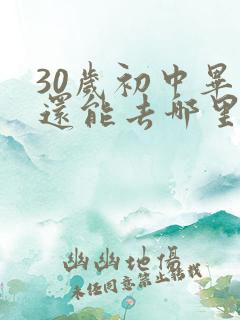 30歲初中畢
還能去哪里
幽幽地傷
未经同意禁止转载